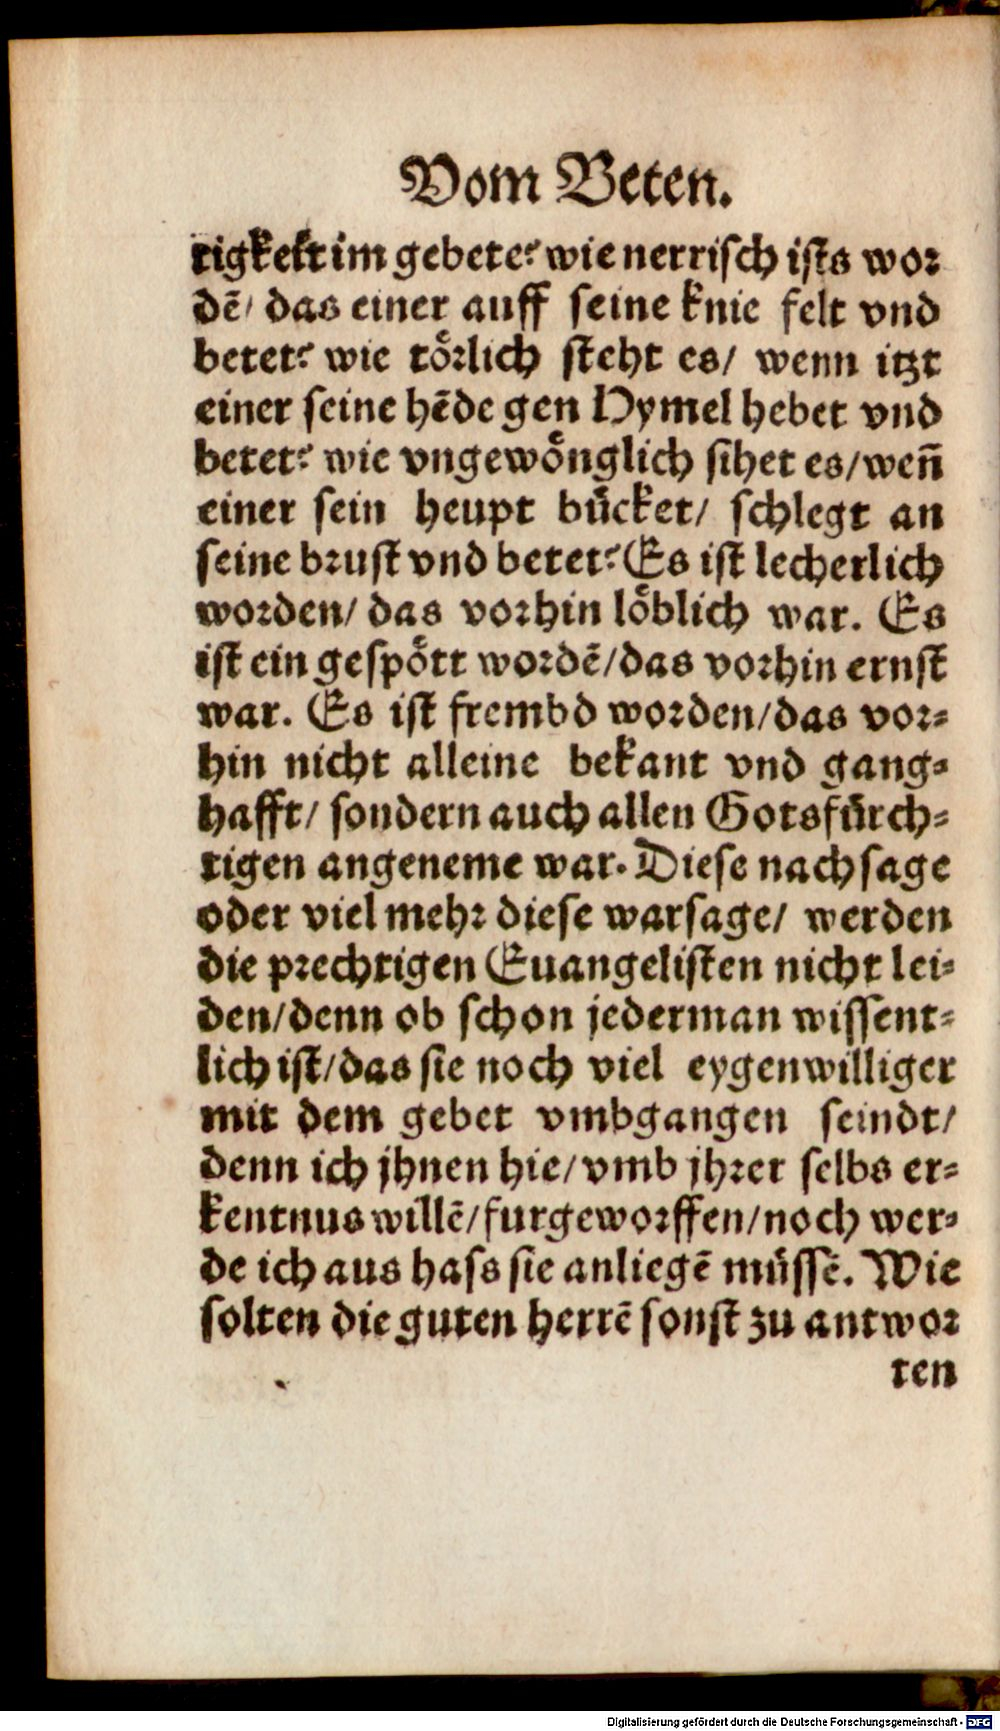 Vom Beten.
tigkeit im gebete? wie nerrisch ists wor
dē/ das einer auff seine knie felt vnd
betet? wie toͤrlich steht es/ wenn itzt
einer seine hēde gen Hymel hebet vnd
betet? wie vngewoͤnglich sihet es/ wen̄
einer sein heupt buͤcket/ schlegt an
seine brust vnd betet? Es ist lecherlich
worden/ das vorhin loͤblich war. Es
ist ein gespoͤtt wordē/ das vorhin ernst
war. Es ist frembd worden/ das vor-
hin nicht alleine bekant vnd gang-
hafft/ sondern auch allen Gotsfuͤrch-
tigen angeneme war. Diese nachsage
oder viel mehr diese warsage/ werden
die prechtigen Euangelisten nicht lei-
den/ denn ob schon jederman wissent-
lich ist/ das sie noch viel eygenwilliger
mit dem gebet vmbgangen seindt/
denn ich jhnen hie/ vmb jhrer selbs er-
kentnus willē/ furgeworffen/ noch wer-
de ich aus hass sie anliegē muͤssē. Wie
solten die guten herrē sonst zu antwor
ten
Digitalisierung gefördert durch die Deutsche Forschungsgemeinschaft - DFG